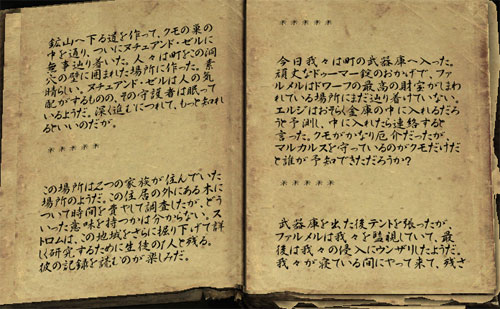 鉱山へ下る道を作って、クモの巣の
中を通り、ついにヌチュアンド・ゼルに
無事辿り着いた。人々は町をこの洞
穴の壁に囲まれた場所に作った。素
晴らしい。ヌチュアンド・ゼルは人の気
配がするものの、その守護者は眠って
いるようだ。深く進むにつれて、もっと知れれ
るといいのだが。
*****
この場所は2つの家族が住んでいた
場所のようだ。この住居の外にある木に
ついて時間を費やして調査したが、どう
いった意味を持つかは分からない。ス
トロムは、この地域をさらに掘り下げて詳
しく研究するために生徒の1人と残る。
彼の記録を読むのが楽しみだ。
*****
今日我々は町の武器庫へ入った。
頑丈なドゥーマー錠のおかげで、ファ
ルメルはドワーフの最高の財宝がしまわ
れている場所にまだ辿り着けていない。
エルジはおそらく金庫の中に入れるだろ
うと予測し、中に入れたら連絡すると
言った。クモがかなり厄介だったが、
マルカルスを守っているのがクモだけだ
と誰が予知できただろうか?
*****
武器庫を出た後テントを張ったが、
ファルメルは我々を監視していて、最
後は我々の侵入にウンザリしたようだ。
我々が寝ている間にやって来て、残さ